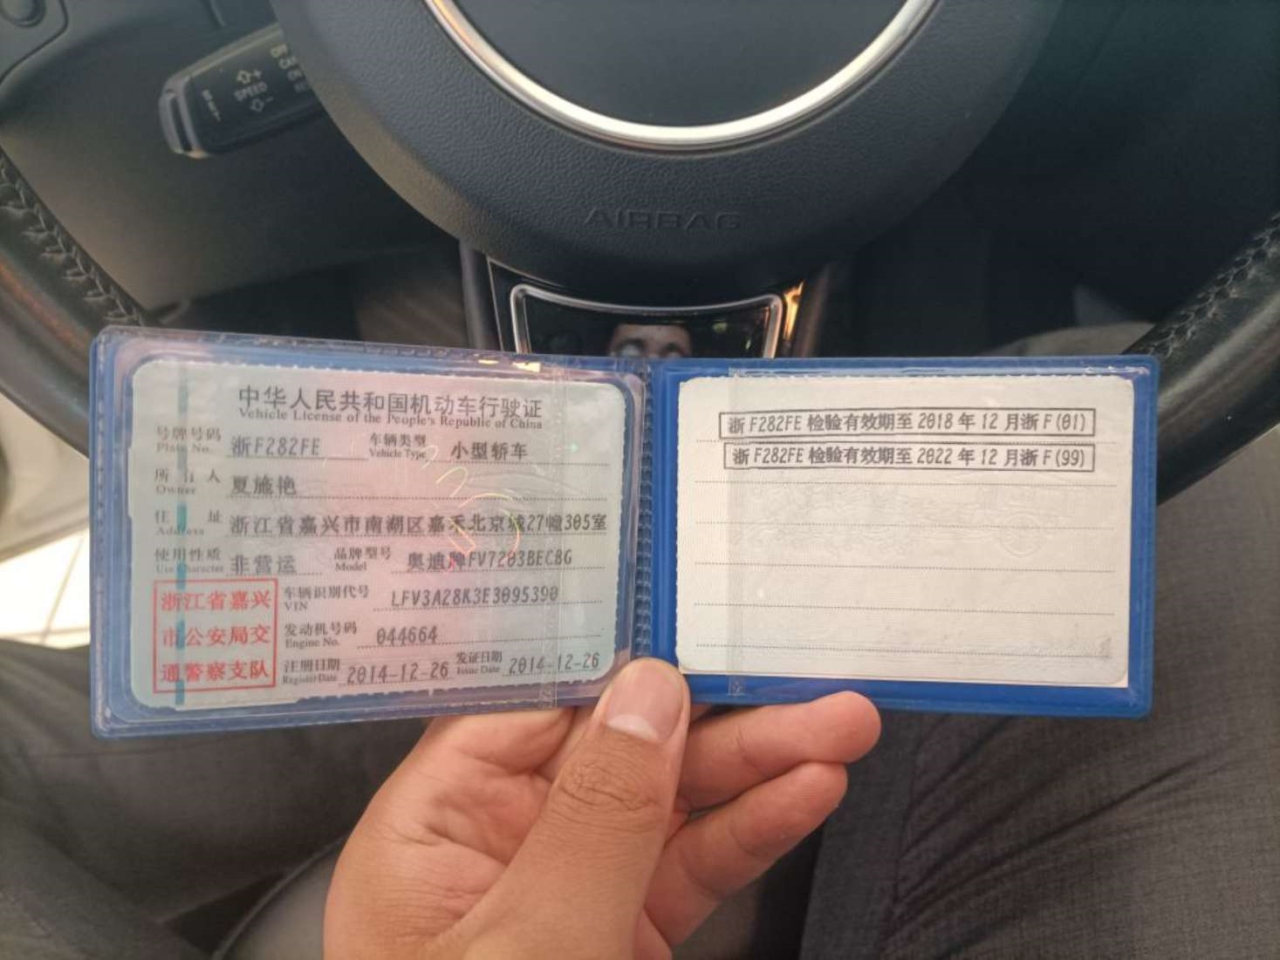 SPEED
AIRBAG
中华人民共和国机动车行驶证
Vehicle License of the People's Republic of China
号牌号码 浙F282FE 车辆类型 小型轿车
Plate No. Vehicle Type
所有人 夏施艳
Owner
住址 浙江省嘉兴市南湖区嘉禾北京城27幢305室
Address
使用性质 非营运 品牌型号 奥迪牌FV7203BECBG
Use Character Model
浙江省嘉兴
市公安局交
通警察支队
车辆识别代号 LFV3A28K3E3095390
VIN
发动机号码 044664
Engine No.
注册日期 2014-12-26 发证日期 2014-12-26
Register Date Issue Date
浙F282FE 检验有效期至 2018 年 12 月浙 F(01)
浙F282FE 检验有效期至 2022 年 12 月浙 F(99)